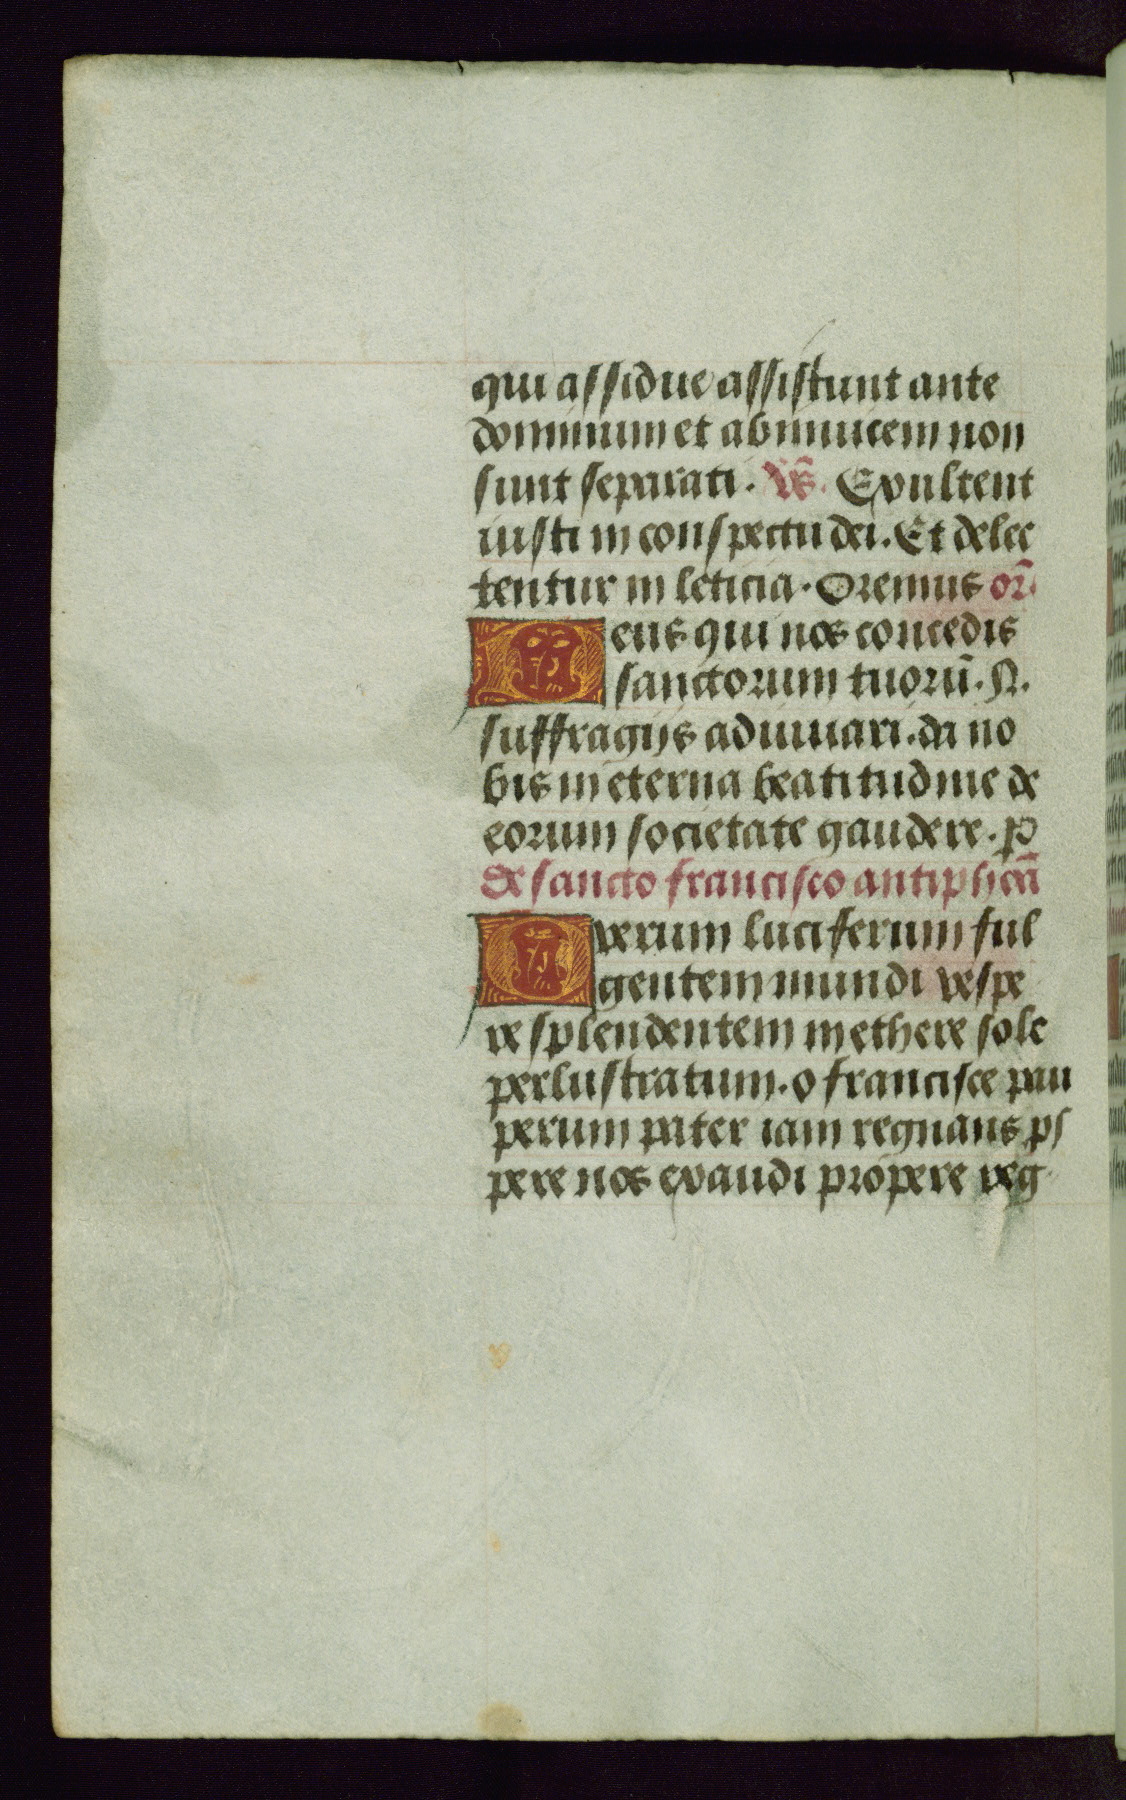 qui assidue assistunt ante
dominum et abinuicem non
sunt separati. V̅s. Exultent
iusti in conspectu dei. Et delec
tentur in leticia. Oremus or̄.
Deus qui nos concedis
sanctorum tuorū. N.
suffragijs adiuuari. da no
bis in eterna beatitudine de
eorum societate gaudere. p
de sancto francisco antiphona
O verum luciferum ful
gentem mundi vespe
re splendentem in ethere sole
perlustratum. o francisce pau
perum pater iam regnans
pere nos exaudi propere reg